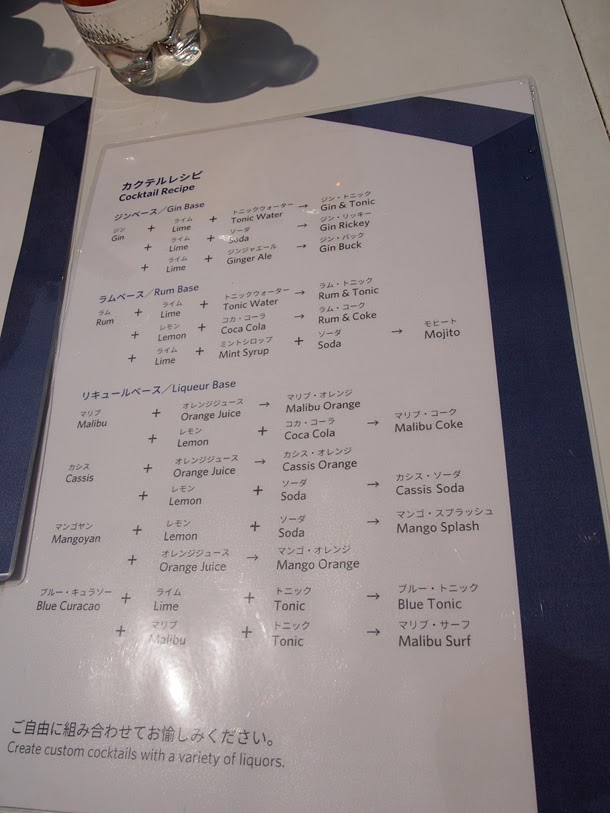 カクテルレシピ
Cocktail Recipe
ジンベース／Gin Base
ジン ライム トニックウォーター ジン・トニック
Gin + Lime + Tonic Water → Gin & Tonic
ライム ソーダ ジン・リッキー
+ Lime + Soda → Gin Rickey
ライム ジンジャエール ジン・バック
+ Lime + Ginger Ale → Gin Buck
ラムベース／Rum Base
ラム ライム トニックウォーター ラム・トニック
Rum + Lime + Tonic Water → Rum & Tonic
レモン コカ・コーラ ラム・コーク
+ Lemon + Coca Cola → Rum & Coke
ライム ミントシロップ ソーダ モヒート
+ Lime + Mint Syrup + Soda → Mojito
リキュールベース／Liqueur Base
マリブ オレンジジュース マリブ・オレンジ
Malibu + Orange Juice → Malibu Orange
レモン コカ・コーラ マリブ・コーク
+ Lemon + Coca Cola → Malibu Coke
カシス オレンジジュース カシス・オレンジ
Cassis + Orange Juice → Cassis Orange
レモン ソーダ カシス・ソーダ
+ Lemon + Soda → Cassis Soda
マンゴヤン レモン ソーダ マンゴ・スプラッシュ
Mangoyan + Lemon + Soda → Mango Splash
オレンジジュース マンゴ・オレンジ
+ Orange Juice → Mango Orange
ブルー・キュラソー ライム トニック ブルー・トニック
Blue Curacao + Lime + Tonic → Blue Tonic
マリブ トニック マリブ・サーフ
+ Malibu + Tonic → Malibu Surf
ご自由に組み合わせてお愉しみください。
Create custom cocktails with a variety of liquors.